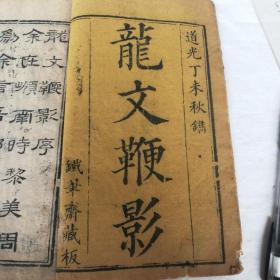 道光丁未秋鐫
龍文鞭影
鐵筆齋藏板
龍文鞭影序
余在嶺南時
黎美周